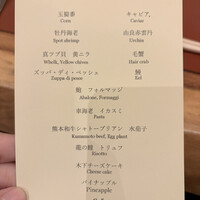 玉蜀黍 キャビア
Corn Caviar
牡丹海老 由良赤雲丹
Spot shrimp Urchin
真ツブ貝 黄ニラ 毛蟹
Whelk, Yellow chives Hair crab
ズッパ・ディ・ペッシェ 鰻
Zuppa di pesce Eel
鮑 フォルマッジ
Abalone, Formaggi
車海老 イカスミ
Pasta
熊本和牛シャトーブリアン 米茄子
Kumamoto beef, Egg plant
龍の瞳 トリュフ
Risotto
木下チーズケーキ
Cheese cake
パイナップル
Pineapple